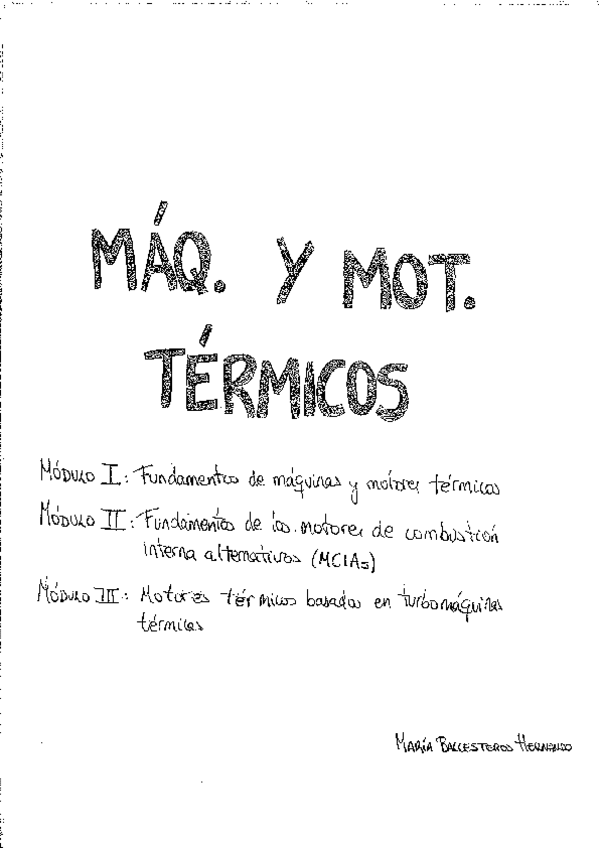 MÁQ. Y MOT.
TÉRMICOS
MÓDULO I: Fundamentos de máquinas y motores térmicos
MÓDULO II: Fundamentos de los motores de combustión
interna alternativos (MCIAs)
MÓDULO III: Motores térmicos basados en turbomáquinas
térmicas
MARÍA BALLESTEROS HERNANDO